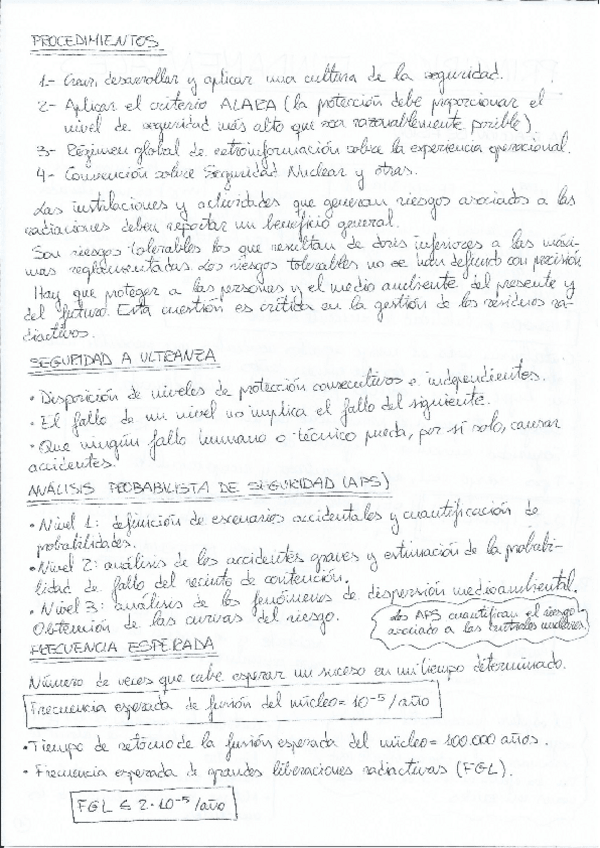 PROCEDIMIENTOS
1- Crear, desarrollar y aplicar una cultura de la seguridad.
2- Aplicar el criterio ALARA (la protección debe proporcionar el
nivel de seguridad más alto que sea razonablemente posible)
3- Régimen global de retroinformación sobre la experiencia operacional.
4- Convención sobre Seguridad Nuclear y otras.
Las instalaciones y actividades que generan riesgos asociados a las
radiaciones deben reportar un beneficio general.
Son riesgos tolerables los que resultan de dosis inferiores a las máxi-
mas reglamentadas. Los riesgos tolerables no se han definido con precisión
Hay que proteger a las personas y el medio ambiente del presente y
del futuro. Esta cuestión es crítica en la gestión de los residuos ra-
diactivos.
SEGURIDAD A ULTRANZA
• Disposición de niveles de protección consecutivos e independientes.
• El fallo de un nivel no implica el fallo del siguiente.
• Que ningún fallo humano o técnico pueda, por sí solo, causar
accidentes.
ANÁLISIS PROBABILISTA DE SEGURIDAD (APS)
• Nivel 1: definición de escenarios accidentales y cuantificación de
probabilidades.
• Nivel 2: análisis de los accidentes graves y estimación de la probabi-
lidad de fallo del recinto de contención.
• Nivel 3: análisis de los fenómenos de dispersión medioambiental.
Obtención de las curvas del riesgo.
Los APS cuantifican el riesgo
asociado a las centrales nucleares
FRECUENCIA ESPERADA
Número de veces que cabe esperar un suceso en un tiempo determinado.
Frecuencia esperada de fusión del núcleo = 10⁻⁵/año
• Tiempo de retorno de la fusión esperada del núcleo = 100.000 años.
• Frecuencia esperada de grandes liberaciones radiactivas (FGL).
FGL ≤ 2·10⁻⁵/año